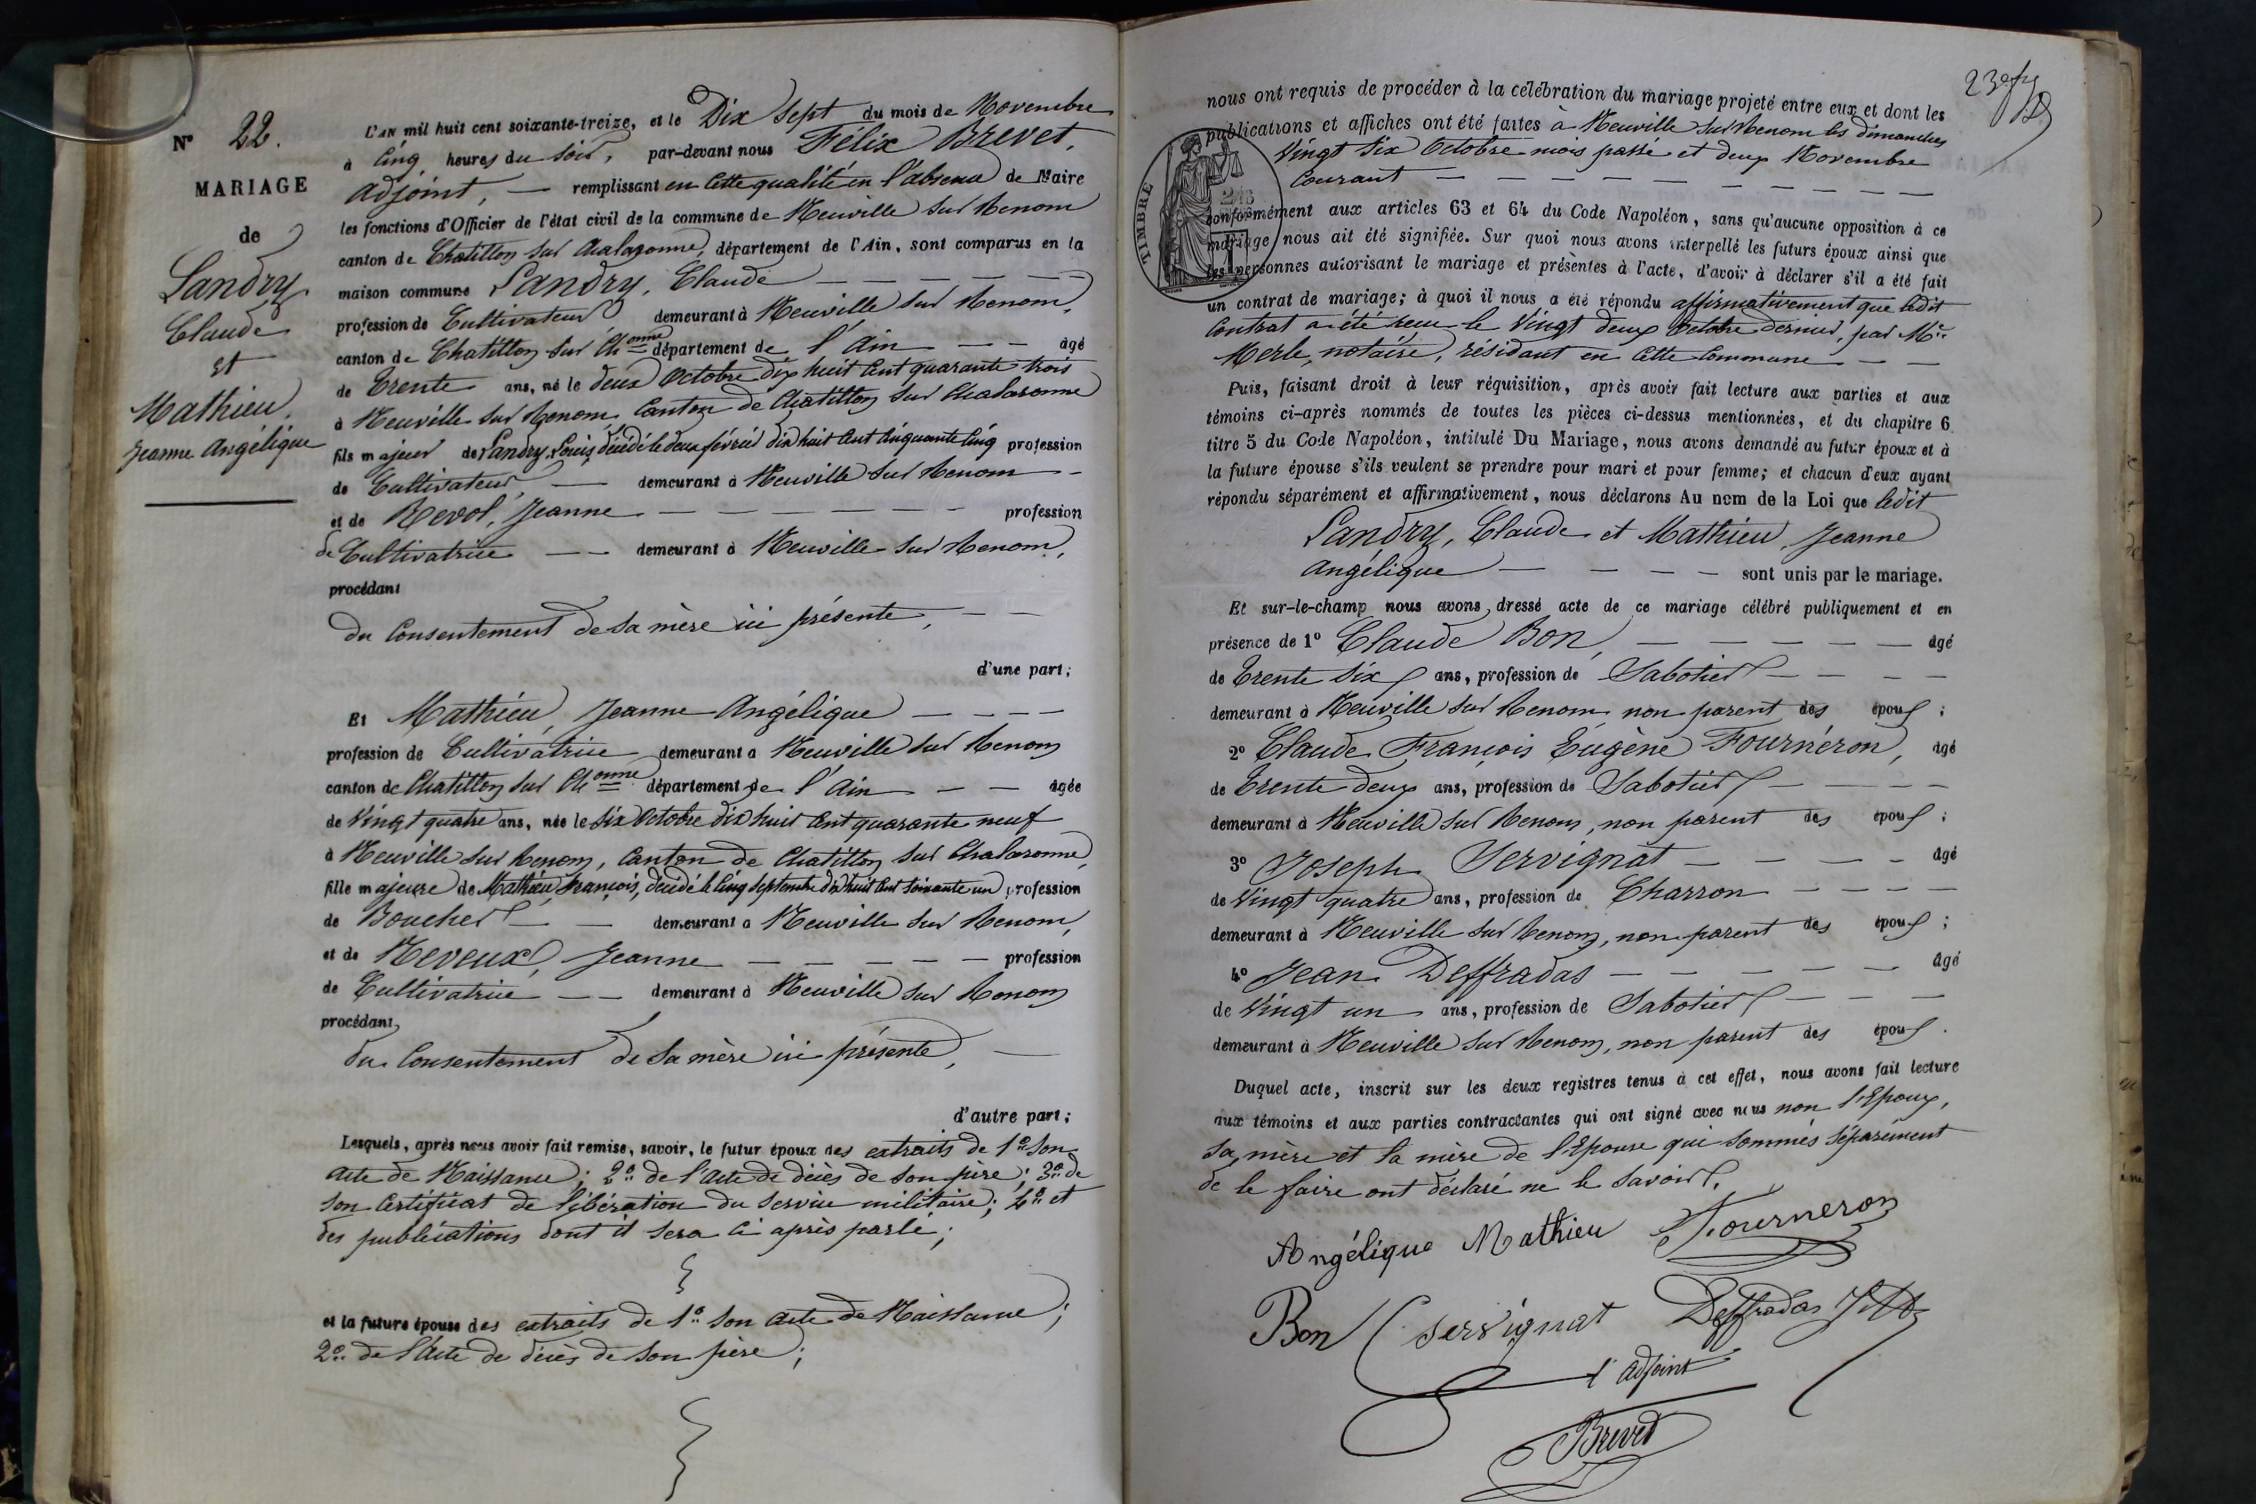 N° 22.
MARIAGE
de
Landry
Claude
et
Mathieu,
Jeanne Angélique
L'AN mil huit cent soixante-treize, et le Dix Sept du mois de Novembre
à Cinq heures du Soir, par-devant nous Félix Brevet,
adjoint, — remplissant en cette qualité en l'absence de Maire
les fonctions d'Officier de l'état civil de la commune de Neuville sur Renom
canton de Chatillon sur Chalaronne, département de l'Ain, sont comparus en la
maison commune Landry, Claude — — — —
profession de Cultivateur demeurant à Neuville sur Renom,
canton de Chatillon sur Ch onne département de l'Ain — — âgé
de Trente ans, né le deux Octobre dix huit cent quarante trois
à Neuville sur Renom, Canton de Chatillon sur Chalaronne
fils majeur de Landry, Louis, décédé le deux février dix huit cent cinquante cinq profession
de Cultivateur, — demeurant à Neuville sur Renom —
et de Revol, Jeanne — — — — — — — profession
de Cultivatrice — — demeurant à Neuville sur Renom,
procédant
du Consentement de sa mère ici présente, — —
d'une part;
Et Mathieu, Jeanne Angélique — — — —
profession de Cultivatrice demeurant à Neuville sur Renom
canton de Chatillon sur Ch onne département de l'Ain — — âgée
de Vingt quatre ans, née le Six Octobre dix huit cent quarante neuf
à Neuville sur Renom, Canton de Chatillon sur Chalaronne,
fille majeure de Mathieu, François, décédé le Cinq Septembre dix huit cent soixante un profession
de Boucher — — demeurant à Neuville sur Renom,
et de Neveux, Jeanne — — — — — profession
de Cultivatrice — — demeurant à Neuville sur Renom
procédant,
du Consentement de sa mère ici présente, —
d'autre part;
Lesquels, après nous avoir fait remise, savoir, le futur époux des extraits de 1° son
acte de Naissance; 2° de l'acte de décès de son père; 3° de
son Certificat de libération du service militaire; 4° et
des publications dont il sera ci après parlé;
et la future épouse des extraits de 1° son acte de Naissance;
2° de l'acte de décès de son père;
nous ont requis de procéder à la célébration du mariage projeté entre eux et dont les
publications et affiches ont été faites à Neuville sur Renom les dimanches
Vingt Six Octobre mois passé et deux Novembre
Courant — — — — — — — — —
TIMBRE
conformément aux articles 63 et 64 du Code Napoléon, sans qu'aucune opposition à ce
mariage nous ait été signifiée. Sur quoi nous avons interpellé les futurs époux ainsi que
les personnes autorisant le mariage et présentes à l'acte, d'avoir à déclarer s'il a été fait
un contrat de mariage; à quoi il nous a été répondu affirmativement que ledit
Contrat a été reçu le Vingt deux Octobre dernier, par Me
Merle, notaire, résidant en cette Commune — —
Puis, faisant droit à leur réquisition, après avoir fait lecture aux parties et aux
témoins ci-après nommés de toutes les pièces ci-dessus mentionnées, et du chapitre 6
titre 5 du Code Napoléon, intitulé Du Mariage, nous avons demandé au futur époux et à
la future épouse s'ils veulent se prendre pour mari et pour femme; et chacun d'eux ayant
répondu séparément et affirmativement, nous déclarons Au nom de la Loi que ledit
Landry, Claude et Mathieu, Jeanne
Angélique — — — — sont unis par le mariage.
Et sur-le-champ nous avons dressé acte de ce mariage célébré publiquement et en
présence de 1° Claude Bon, — — — — — âgé
de Trente Six ans, profession de Sabotier — — —
demeurant à Neuville sur Renom, non parent des époux;
2° Claude François Eugène Fourneron, âgé
de Trente deux ans, profession de Sabotier — — — —
demeurant à Neuville sur Renom, non parent des époux;
3° Joseph Servignat — — — — âgé
de Vingt quatre ans, profession de Charron — — — —
demeurant à Neuville sur Renom, non parent des époux;
4° Jean Deffradas — — — — — âgé
de Vingt un ans, profession de Sabotier — — —
demeurant à Neuville sur Renom, non parent des époux.
Duquel acte, inscrit sur les deux registres tenus à cet effet, nous avons fait lecture
aux témoins et aux parties contractantes qui ont signé avec nous non l'Epoux,
sa mère et la mère de l'Epouse qui sommés séparément
de le faire ont déclaré ne le savoir.
Angélique Mathieu Fourneron
Bon Servignat Deffradas
l'adjoint
Brevet